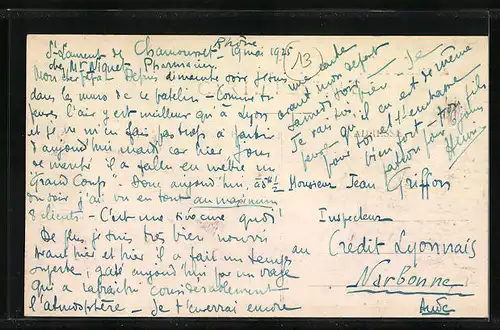 St Laurent de Chamousset - Rhône
chez Mr Niguet Pharmacien 19 mai 1925
Mon cher Depuis dimanche soir je suis
dans les murs de ce patelin - Comme tu
l'air y est meilleur qu'à Lyon
et je ne m'en fais pas trop à partir
d'aujourd'hui mardi car hier jour
de il a fallu en mettre un
"Grand Coup" - Donc aujourd'hui, à 5h 1/2
du soir j'ai vu en tout au maximum
8 clients - C'est une sinécure quoi!
De plus je suis très bien nourri
avant hier et hier il a fait un temps
superbe, gâté aujourd'hui par un orage
qui a rafraîchi considérablement
l'atmosphère - Je t'enverrai encore
(13)
une carte
avant mon départ
Samedi soir - Je
il en est de même
pour toi et t'embrasse
bien fort - Ton fils
Monsieur Jean Griffon
Inspecteur
au Crédit Lyonnais
Narbonne
Aude